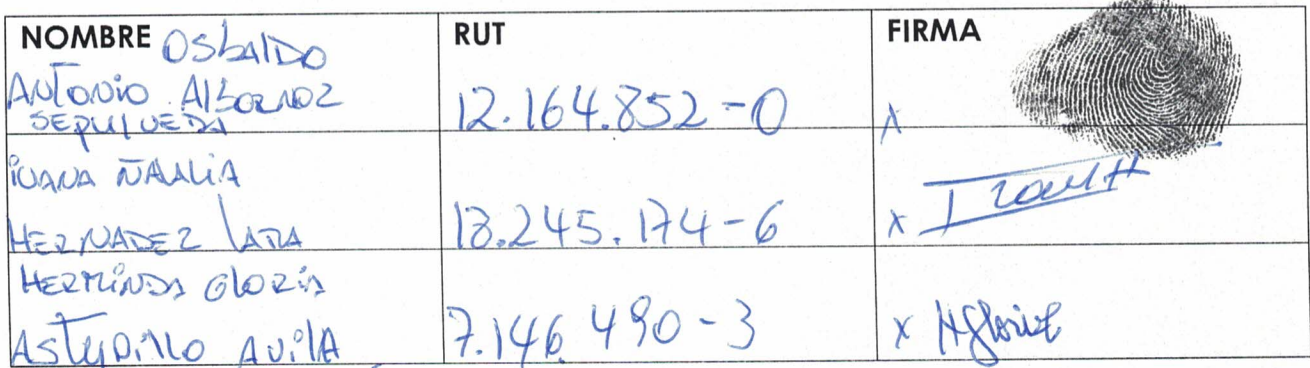 NOMBRE OSbAlDO RUT FIRMA
ANTONIO AlbORNOZ
SEPULVEDA 12.164.852-0 X
IVANA ÑAALIA
HERNADEZ LARA 13.245.174-6 X
HERMINDA GLORIA
ASTUDILLO AVILA 7.146.490-3 X HGloria